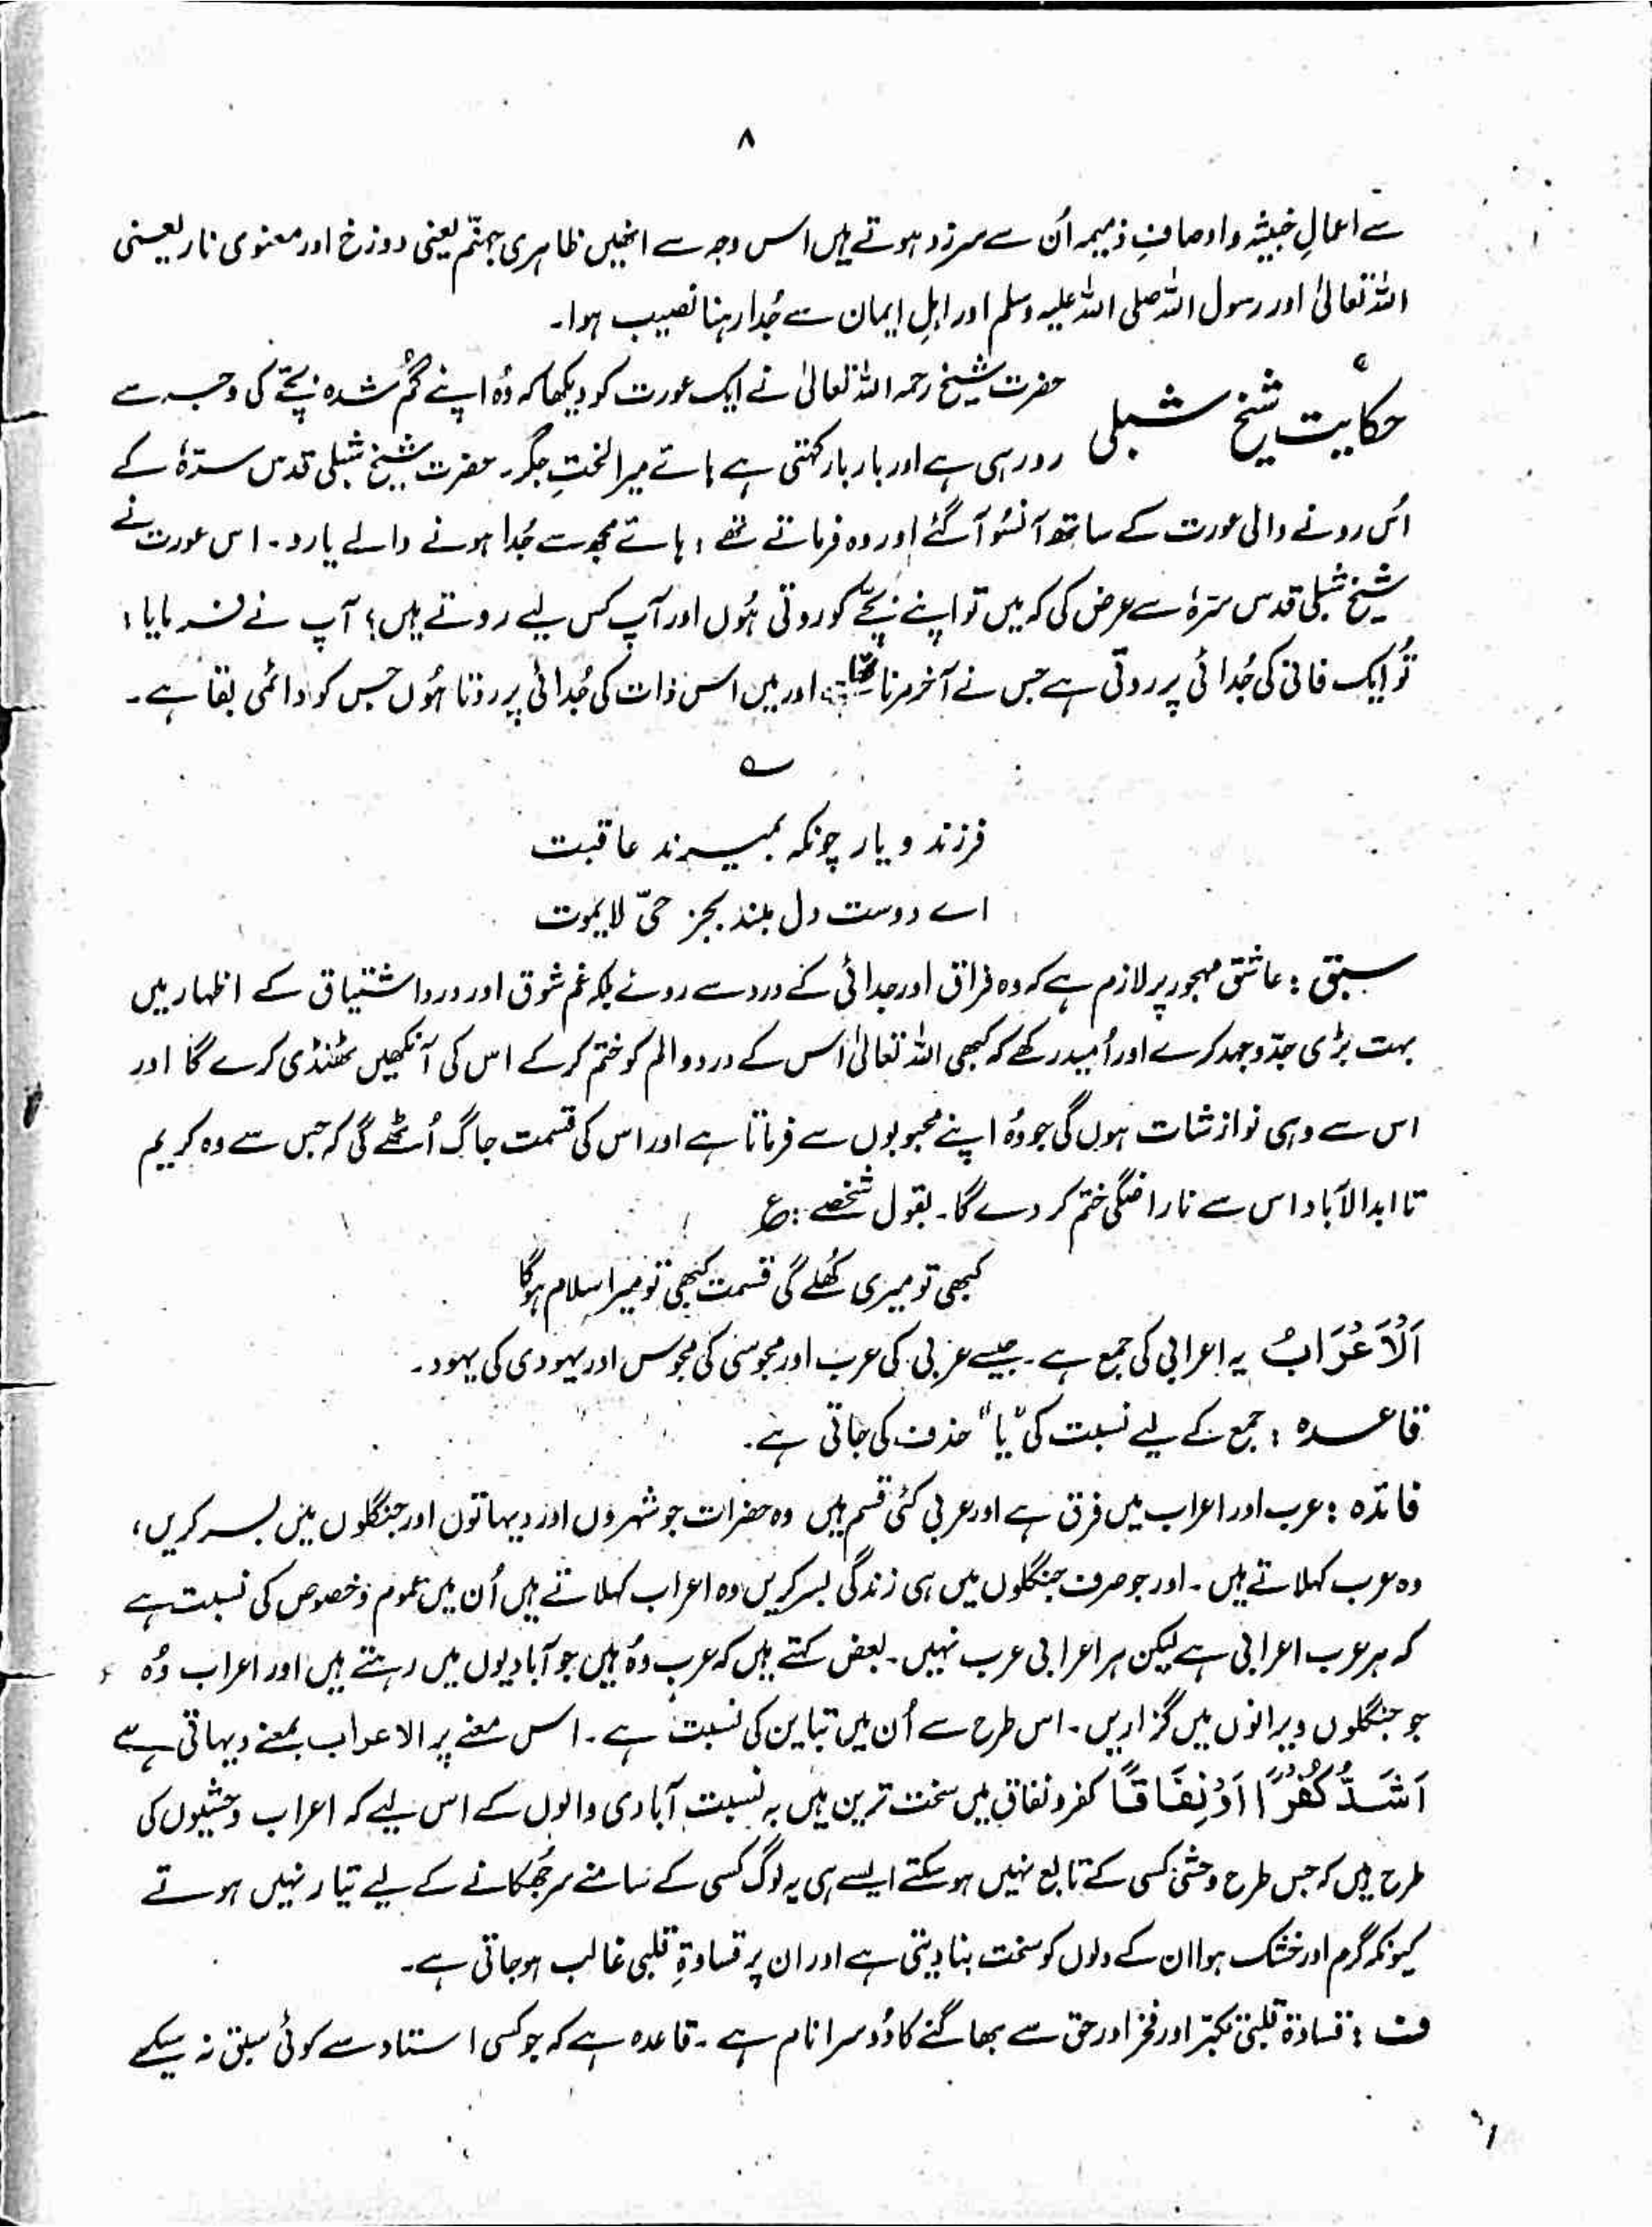 ۸
سے اعمالِ خبیثہ و اوصافِ ذمیمہ اُن سے سرزد ہوتے ہیں اس وجہ سے انھیں ظاہری جہنّم یعنی دوزخ اور معنوی نار یعنی
اللہ تعالیٰ اور رسول اللہ صلی اللہ علیہ وسلم اور اہلِ ایمان سے جُدا رہنا نصیب ہوا۔
حکایت شیخ شبلی
حضرت شیخ رحمہ اللہ تعالیٰ نے ایک عورت کو دیکھا کہ وُہ اپنے گُم شدہ بچّے کی وجہ سے
رو رہی ہے اور بار بار کہتی ہے ہائے میرا لختِ جگر۔ حضرت شیخ شبلی قدس سرّہٗ کے
اُس رونے والی عورت کے ساتھ آنسُو آگئے اور وہ فرماتے تھے : ہائے مجھ سے جُدا ہونے والے یارو۔ اس عورت نے
شیخ شبلی قدس سّرہٗ سے عرض کی کہ میں تو اپنے بچّے کو روتی ہُوں اور آپ کس لیے روتے ہیں؟ آپ نے فرمایا :
تُو ایک فانی کی جُدائی پر روتی ہے جس نے آخر مرنا تھا اور میں اس ذات کی جُدائی پر روتا ہُوں جس کو دائمی بقا ہے۔
؎
فرزند و یار چونکہ بمیرند عاقبت
اے دوست دل مبند بجز حیّ لایموت
سبق : عاشق مہجور پر لازم ہے کہ وہ فراق اور جدائی کے درد سے روئے بلکہ غم شوق اور درد اشتیاق کے اظہار میں
بہت بڑی جدّوجہد کرے اور اُمید رکھے کہ کبھی اللہ تعالیٰ اس کے درد و الم کو ختم کرکے اس کی آنکھیں ٹھنڈی کرے گا اور
اس سے وہی نوازشات ہوں گی جو وُہ اپنے محبوبوں سے فرماتا ہے اور اس کی قسمت جاگ اُٹھے گی کہ جس سے وہ کریم
تا ابد الآباد اس سے ناراضگی ختم کر دے گا۔ بقول شخصے : ع
کبھی تو میری کُھلے گی قسمت کبھی تو میرا سلام ہوگا
اَلْاَعْرَابُ یہ اعرابی کی جمع ہے۔ جیسے عربی کی عرب اور مجوسی کی مجوس اور یہودی کی یہود۔
قاعدہ : جمع کے لیے نسبت کی "یا" حذف کی جاتی ہے۔
فائدہ : عرب اور اعراب میں فرق ہے اور عربی کئی قسم ہیں وہ حضرات جو شہروں اور دیہاتوں اور جنگلوں میں بسر کریں،
وہ عرب کہلاتے ہیں۔ اور جو صرف جنگلوں میں ہی زندگی بسر کریں وہ اعراب کہلاتے ہیں اُن میں عموم وخصوص کی نسبت ہے
کہ ہر عرب اعرابی ہے لیکن ہر اعرابی عرب نہیں۔ بعض کہتے ہیں کہ عرب وُہ ہیں جو آبادیوں میں رہتے ہیں اور اعراب وُہ
جو جنگلوں ویرانوں میں گزاریں۔ اس طرح سے اُن میں تباین کی نسبت ہے۔ اس معنے پر الاعراب بمعنے دیہاتی ہے
اَشَدُّ کُفْرًا اَوْنِفَاقًا کفر و نفاق میں سخت ترین ہیں بہ نسبت آبادی والوں کے اس لیے کہ اعراب وحشیوں کی
طرح ہیں کہ جس طرح وحشی کسی کے تابع نہیں ہوسکتے ایسے ہی یہ لوگ کسی کے سامنے سر جُھکانے کے لیے تیار نہیں ہوتے
کیونکہ گرم اور خشک ہوا ان کے دلوں کو سخت بنا دیتی ہے اور ان پر قساوۃِ قلبی غالب ہو جاتی ہے۔
ف : قساوۃ قلبی تکبّر اور فخر اور حق سے بھاگنے کا دُوسرا نام ہے۔ قاعدہ ہے کہ جو کسی استاد سے کوئی سبق نہ سیکھے